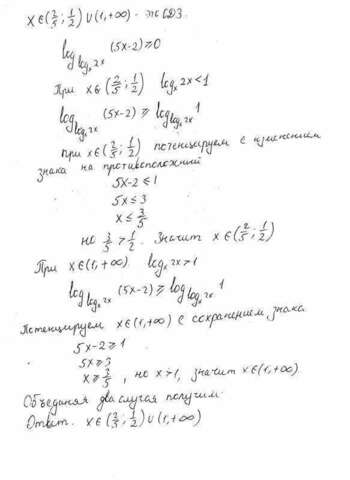 x∈(2/5; 1/2)∪(1,+∞) - ОДЗ
log_{log_x 2x} (5x-2) ≥ 0
При x∈(2/5; 1/2) log_x 2x < 1
log_{log_x 2x} (5x-2) ≥ log_{log_x 2x} 1
при x∈(2/5; 1/2) потенцируем с изменением
знака на противоположный
5x-2 ≤ 1
5x ≤ 3
x ≤ 3/5
но 3/5 > 1/2. Значит x∈(2/5; 1/2)
При x∈(1,+∞) log_x 2x > 1
log_{log_x 2x} (5x-2) ≥ log_{log_x 2x} 1
Потенцируем x∈(1,+∞) с сохранением знака
5x-2 ≥ 1
5x ≥ 3
x ≥ 3/5, но x>1, значит x∈(1,+∞)
Объединяя два случая получим
Ответ. x∈(2/5; 1/2)∪(1,+∞)